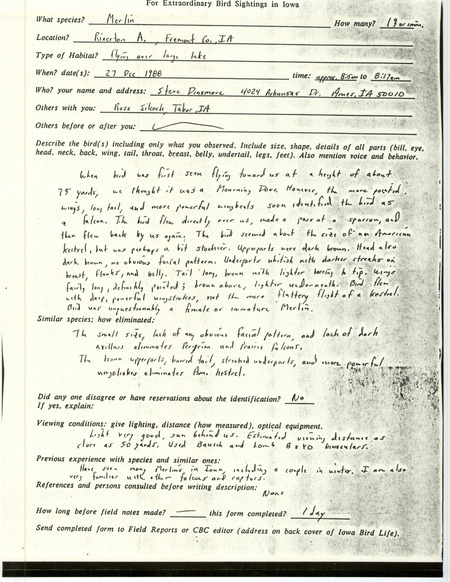 For Extraordinary Bird Sightings in Iowa
What species? Merlin How many? 1 ♀ or imm.
Location? Riverton A. Fremont Co., IA
Type of Habitat? flying over large lake
When? date(s): 27 Dec 1988 time: approx. 8:15am to 8:17am
Who? your name and address: Steve Dinsmore 4024 Arkansas Dr. Ames, IA 50010
Others with you: Ross Silcock, Tabor, IA
Others before or after you:
Describe the bird(s) including only what you observed. Include size, shape, details of all parts (bill, eye,
head, neck, back, wing, tail, throat, breast, belly, undertail, legs, feet). Also mention voice and behavior.
When bird was first seen flying toward us at a height of about
75 yards, we thought it was a Mourning Dove. However, the more pointed
wings, long tail, and more powerful wingbeats soon identified the bird as
a falcon. The bird flew directly over us, made a pass at a sparrow, and
then flew back by us again. The bird seemed about the size of an American
Kestrel, but was perhaps a bit stockier. Upperparts were dark brown. Head also
dark brown, no obvious facial pattern. Underparts whitish with darker streaks on
breast, flanks, and belly. Tail long, brown with lighter barring to tip. Wings
fairly long, definitely pointed; brown above, lighter underneath. Bird flew
with deep, powerful wingstrokes, not the more fluttery flight of a kestrel.
Bird was unquestionably a female or immature Merlin.
Similar species: how eliminated:
The small size, lack of any obvious facial pattern, and lack of dark
axillars eliminates Peregrine and Prairie Falcons.
The brown upperparts, barred tail, streaked underparts, and more powerful
wingstrokes eliminates Am. Kestrel.
Did any one disagree or have reservations about the identification? No
If yes, explain:
Viewing conditions: give lighting, distance (how measured), optical equipment.
Light very good, sun behind us. Estimated viewing distance as
close as 50 yards. Used Bausch and Lomb 8x40 binoculars.
Previous experience with species and similar ones:
Have seen many Merlins in Iowa, including a couple in winter. I am also
very familiar with other falcons and raptors.
References and persons consulted before writing description:
None
How long before field notes made? — this form completed? 1 day
Send completed form to Field Reports or CBC editor (address on back cover of Iowa Bird Life).